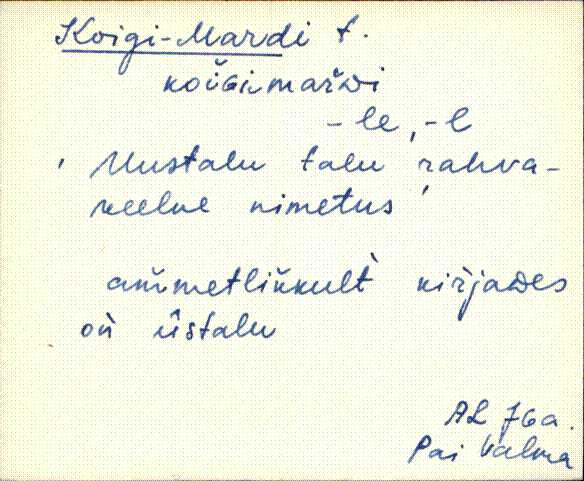 Koigi-Mardi t.
koiGimarDi
-le, -l
, Uustalu talu rahva-
keelne nimetus '
ammetlikkult kirjades
on ũstalu
AL 76a.
Pai Valma